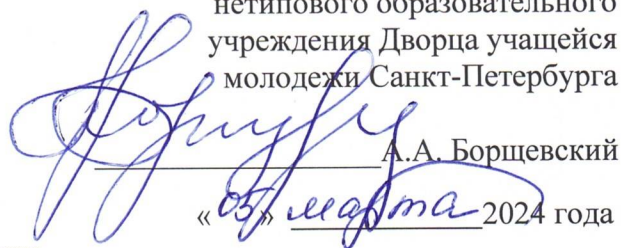 нетипового образовательного
учреждения Дворца учащейся
молодежи Санкт-Петербурга
А.А. Борщевский
«05» марта 2024 года